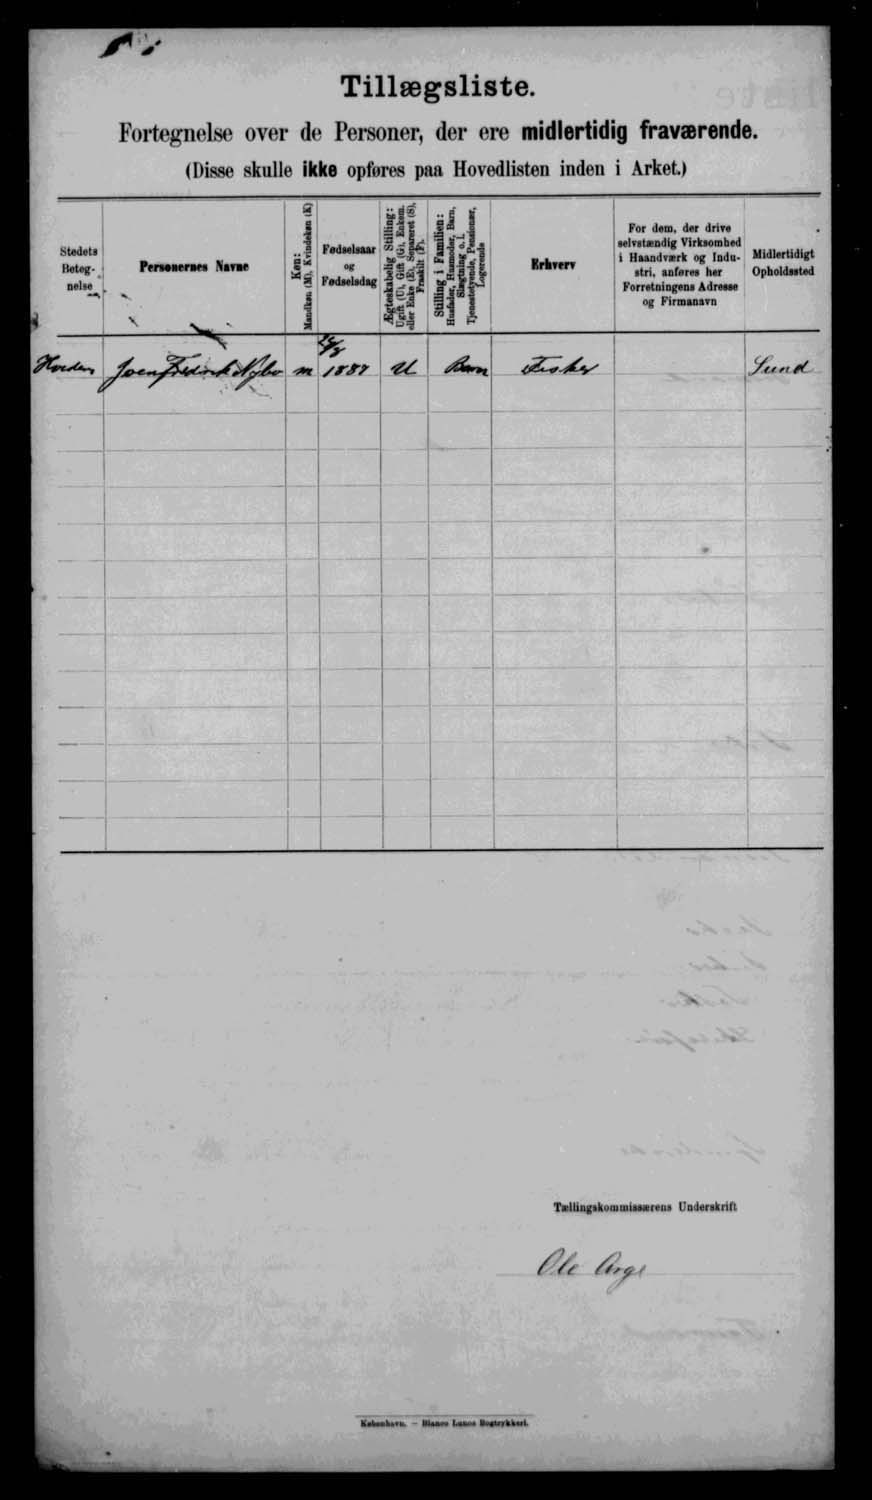 Tillægsliste.
Fortegnelse over de Personer, der ere midlertidig fraværende.
(Disse skulle ikke opføres paa Hovedlisten inden i Arket.)
Stedets
Beteg-
nelse
Personernes Navne
Køn:
Mandkøn (M), Kvindekøn (K)
Fødselsaar
og
Fødselsdag
Ægteskabelig Stilling:
Ugift (U), Gift (G), Enkem.
eller Enke (E), Separeret (S),
Fraskilt (F).
Stilling i Familien:
Husfader, Husmoder, Barn,
Slægtning o. l.
Tjenestetyende, Pensionær,
Logerende
Erhverv
For dem, der drive
selvstændig Virksomhed
i Haandværk og Indu-
stri, anføres her
Forretningens Adresse
og Firmanavn
Midlertidigt
Opholdssted
Joen Fredrik Nybo m 1887 U Barn Fisker Sund
Tællingskommissærens Underskrift
Ole Arge
København. — Bianco Lunos Bogtrykkeri.